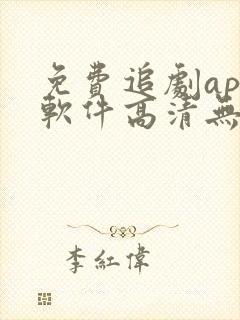 免費追劇ap
軟件高清無
李紅偉